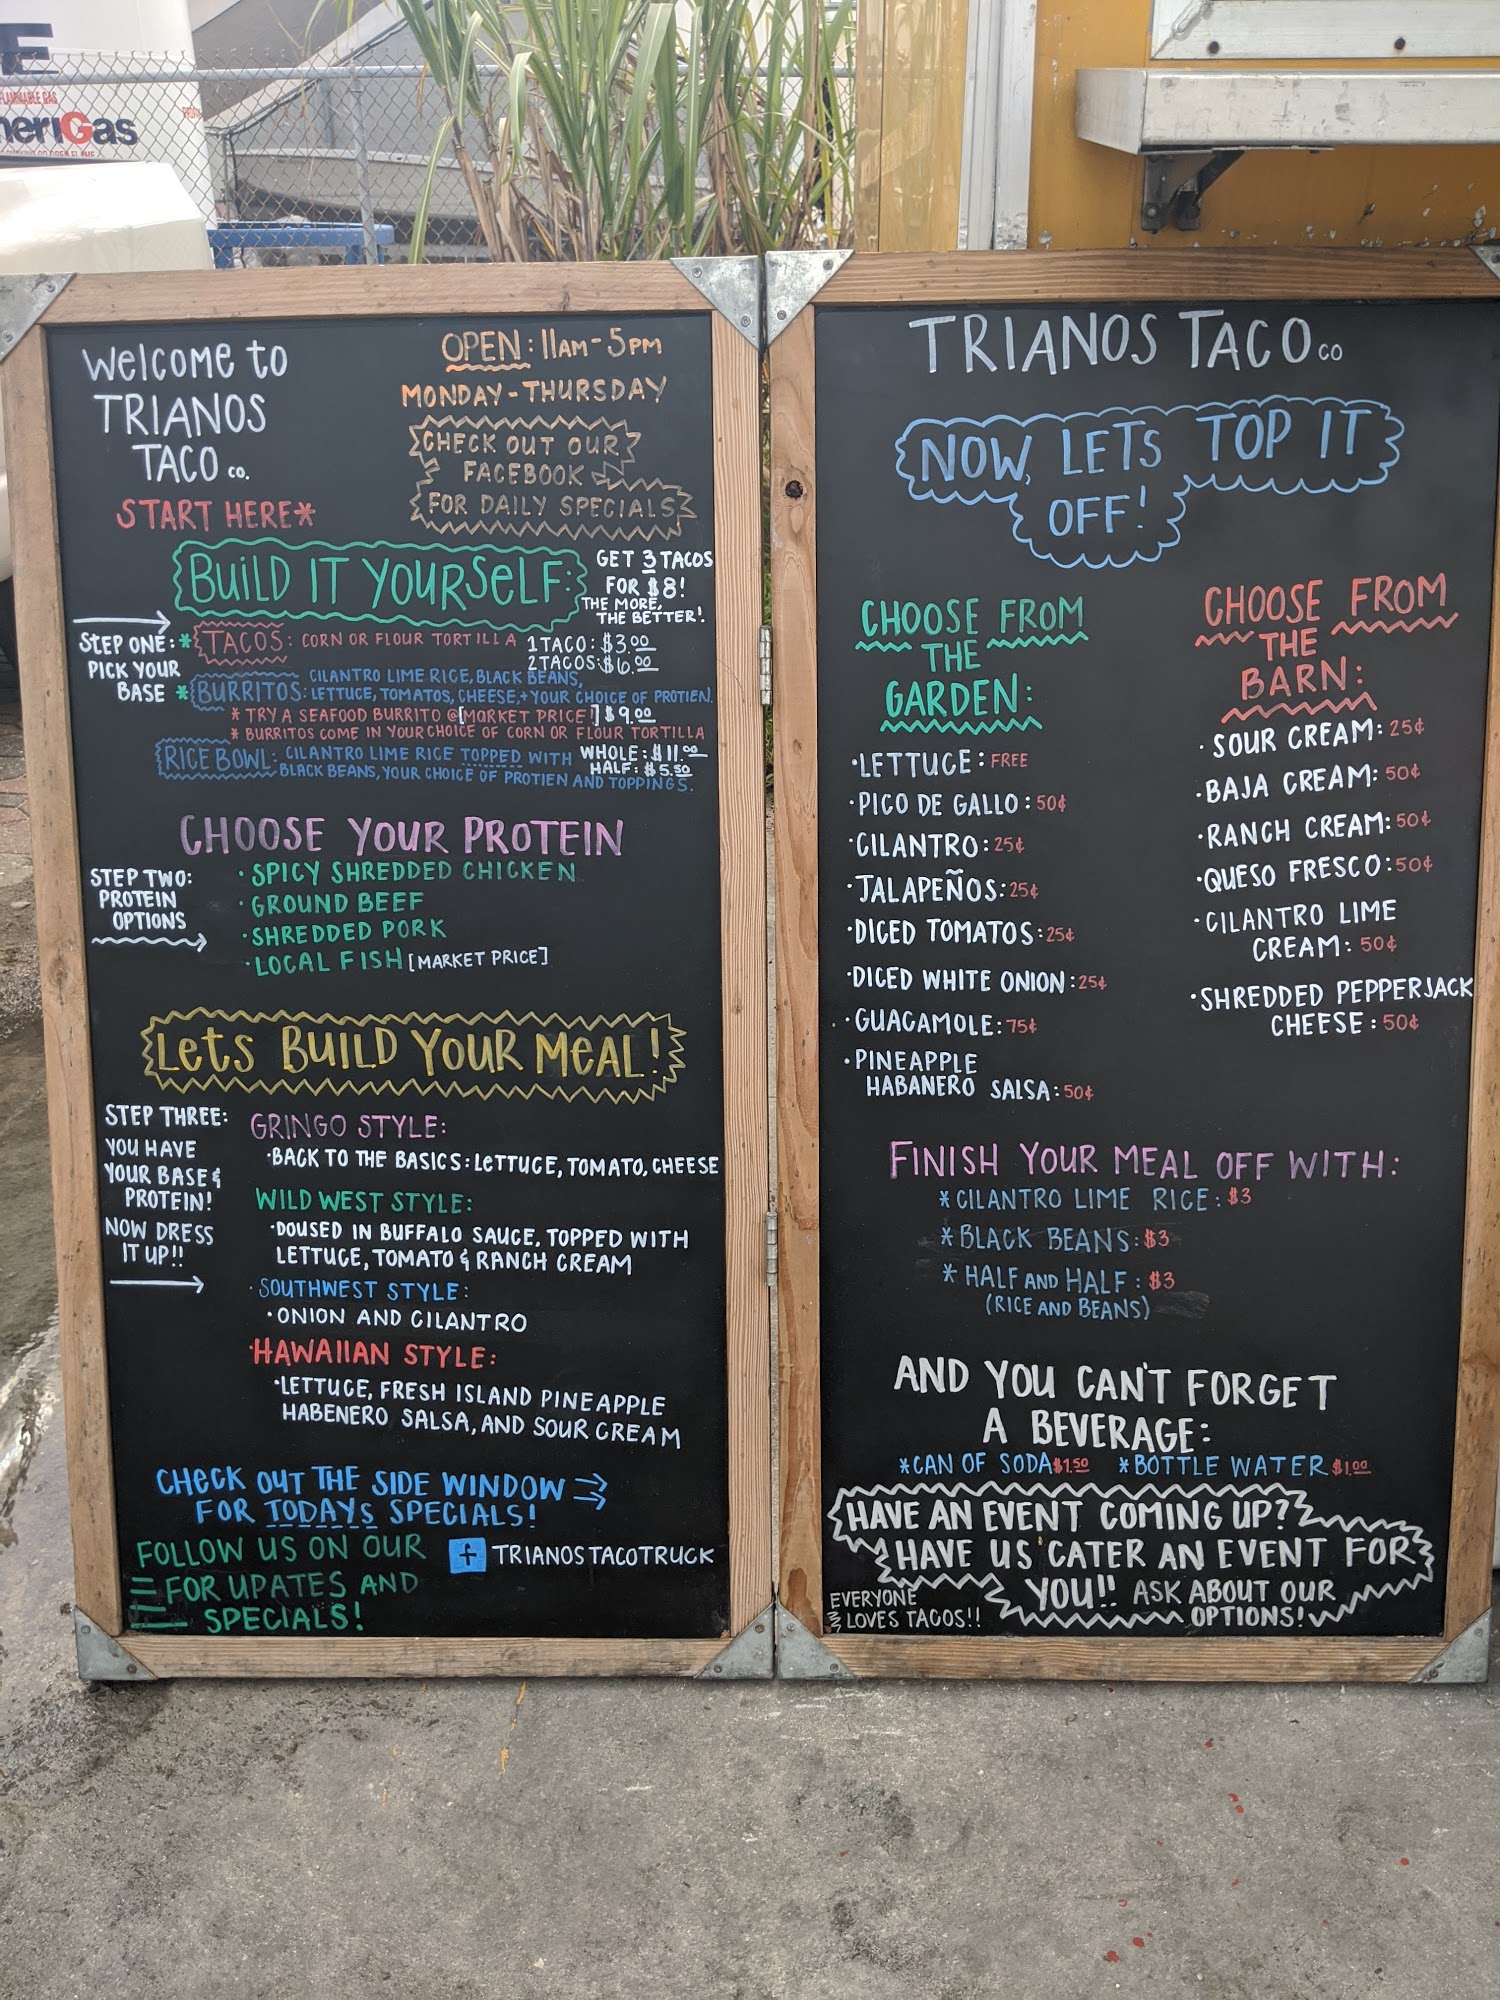 E
FLAMMABLE GAS
meriGas
Welcome to
TRIANOS
TACO co.
START HERE*
OPEN: 11AM-5PM
MONDAY-THURSDAY
CHECK OUT OUR
FACEBOOK
FOR DAILY SPECIALS
BUILD IT YOURSELF:
GET 3 TACOS
FOR $8!
THE MORE,
THE BETTER!
STEP ONE:
PICK YOUR
BASE
*TACOS: CORN OR FLOUR TORTILLA 1 TACO: $3.00
2 TACOS: $6.00
CILANTRO LIME RICE, BLACK BEANS,
*BURRITOS: LETTUCE, TOMATOS, CHEESE, + YOUR CHOICE OF PROTIEN.
* TRY A SEAFOOD BURRITO @[MARKET PRICE!] $9.00
* BURRITOS COME IN YOUR CHOICE OF CORN OR FLOUR TORTILLA
RICE BOWL: CILANTRO LIME RICE TOPPED WITH WHOLE: $11.00
BLACK BEANS, YOUR CHOICE OF PROTIEN AND TOPPINGS. HALF: $5.50
CHOOSE YOUR PROTEIN
STEP TWO:
PROTEIN
OPTIONS
·SPICY SHREDDED CHICKEN
·GROUND BEEF
·SHREDDED PORK
·LOCAL FISH [MARKET PRICE]
Lets BUILD YOUR MEAL!
STEP THREE:
YOU HAVE
YOUR BASE &
PROTEIN!
NOW DRESS
IT UP!!
GRINGO STYLE:
·BACK TO THE BASICS: LETTUCE, TOMATO, CHEESE
WILD WEST STYLE:
·DOUSED IN BUFFALO SAUCE, TOPPED WITH
LETTUCE, TOMATO & RANCH CREAM
·SOUTHWEST STYLE:
·ONION AND CILANTRO
·HAWAIIAN STYLE:
·LETTUCE, FRESH ISLAND PINEAPPLE
HABENERO SALSA, AND SOUR CREAM
CHECK OUT THE SIDE WINDOW
FOR TODAYS SPECIALS!
FOLLOW US ON OUR f TRIANOSTACOTRUCK
FOR UPATES AND
SPECIALS!
TRIANOS TACO CO
NOW, LETS TOP IT
OFF!
CHOOSE FROM
THE
GARDEN:
·LETTUCE: FREE
·PICO DE GALLO: 50¢
·CILANTRO: 25¢
·JALAPEÑOS: 25¢
·DICED TOMATOS: 25¢
·DICED WHITE ONION: 25¢
·GUACAMOLE: 75¢
·PINEAPPLE
HABANERO SALSA: 50¢
CHOOSE FROM
THE
BARN:
·SOUR CREAM: 25¢
·BAJA CREAM: 50¢
·RANCH CREAM: 50¢
·QUESO FRESCO: 50¢
·CILANTRO LIME
CREAM: 50¢
·SHREDDED PEPPERJACK
CHEESE: 50¢
FINISH YOUR MEAL OFF WITH:
* CILANTRO LIME RICE: $3
* BLACK BEANS: $3
* HALF AND HALF: $3
(RICE AND BEANS)
AND YOU CAN'T FORGET
A BEVERAGE:
*CAN OF SODA $1.50 *BOTTLE WATER $1.00
HAVE AN EVENT COMING UP?
HAVE US CATER AN EVENT FOR
YOU!! ASK ABOUT OUR
OPTIONS!
EVERYONE
LOVES TACOS!!